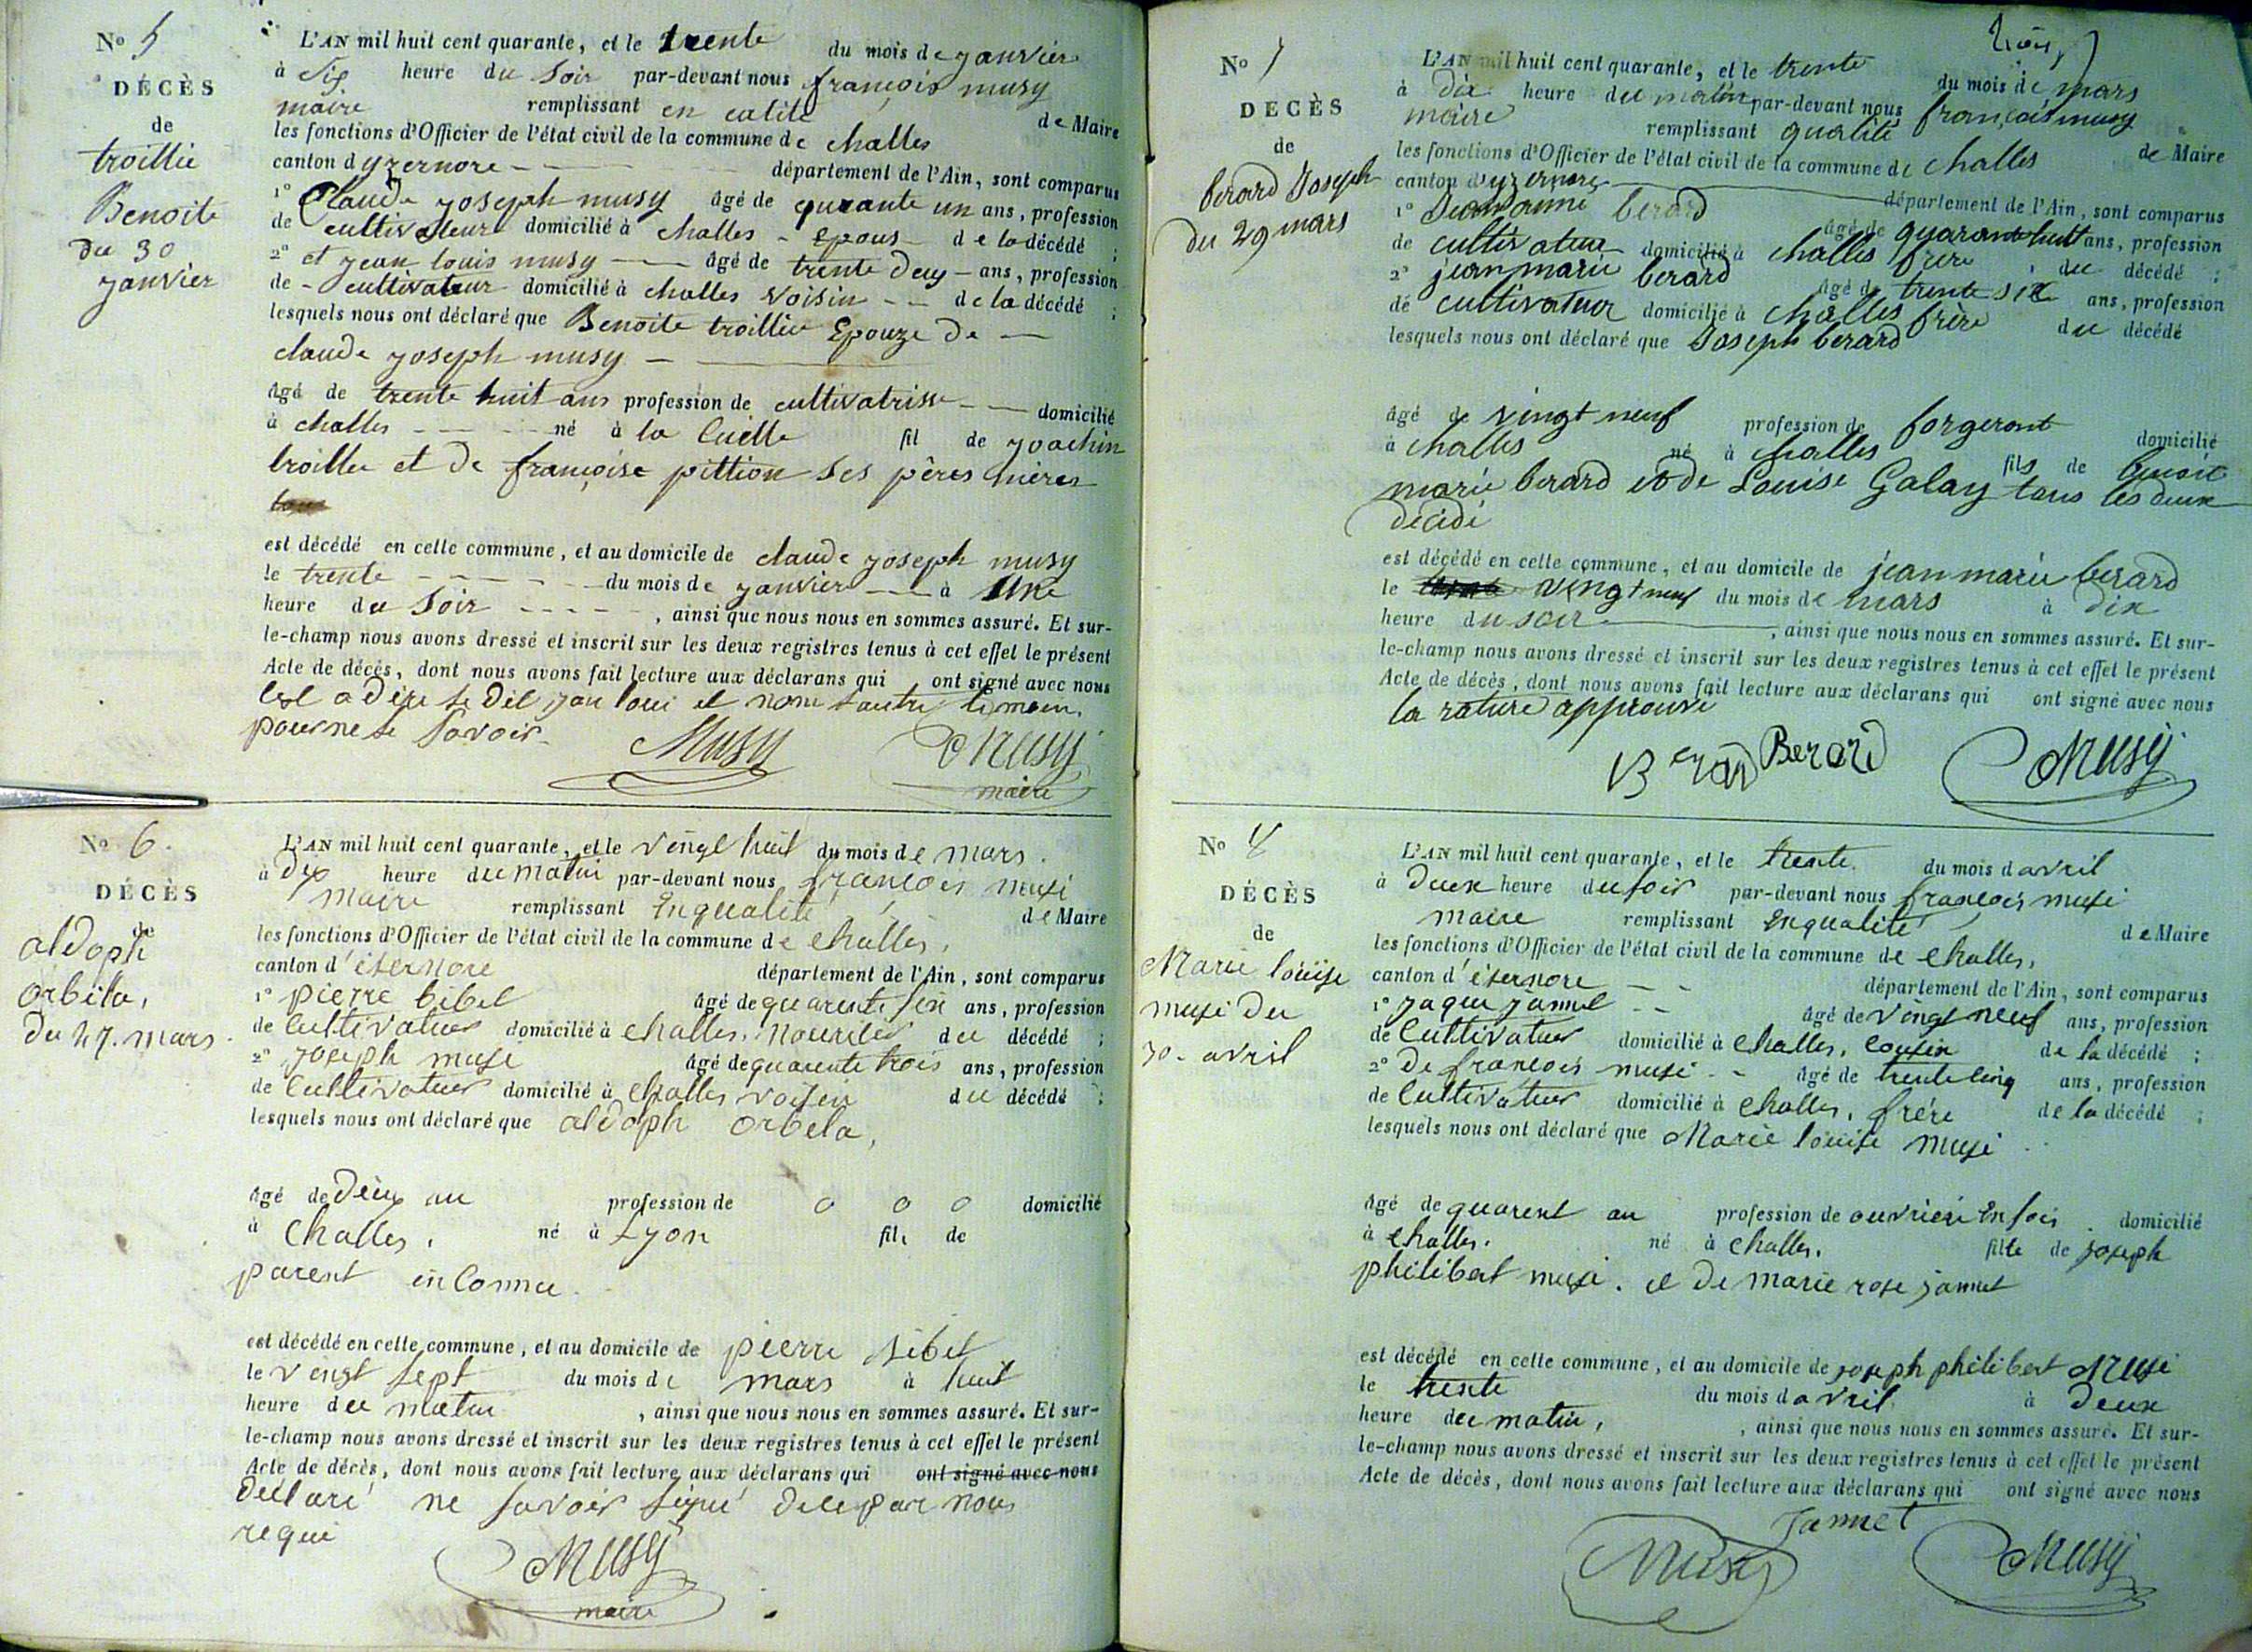 No 5
DÉCÈS
de
troillie
Benoite
du 30
janvier
L'AN mil huit cent quarante, et le trente du mois de janvier
à Six heure du Soir par-devant nous françois musy
maire remplissant en calité de Maire
les fonctions d'Officier de l'état civil de la commune de challes
canton d yzernore département de l'Ain, sont comparus
1° Claude joseph musy âgé de qurante un ans, profession
de cultivateur domicilié à challes - epous de la décédé ;
2° et jean louis musy âgé de trente deux ans, profession
de cultivateur domicilié à challes voisin de la décédé ;
lesquels nous ont déclaré que Benoite troillie Epouze de
claude joseph musy
âgé de trente huit ans profession de cultivatrisse domicilié
à challes né à la fil de joachin
troillie et de françoise pittion ses pères mères
est décédé en cette commune, et au domicile de claude joseph musy
le trente du mois de janvier à une
heure du Soir, ainsi que nous nous en sommes assuré. Et sur-
le-champ nous avons dressé et inscrit sur les deux registres tenus à cet effet le présent
Acte de décès, dont nous avons fait lecture aux déclarans qui ont signé avec nous
cest a dire le dit jan loui et nom lautre
pour ne le Savoir
Musy Musy
maire
No 6.
DÉCÈS
de
aldoph
orbela,
Du 27. mars.
L'AN mil huit cent quarante, et le vingt huit du mois de mars.
à dix heure du matin par-devant nous françois musi
maire remplissant Enqualité de Maire
les fonctions d'Officier de l'état civil de la commune de challes,
canton d'isernore département de l'Ain, sont comparus
1° pierre sibet âgé de quarente ans, profession
de Cultivateur domicilié à challes, du décédé ;
2° joseph musi âgé de quarente trois ans, profession
de Cultivateur domicilié à challes voisin du décédé ;
lesquels nous ont déclaré que aldoph orbela,
âgé de deux an profession de o o o domicilié
à Challes, né à Lyon fils de
parent in Connu.
est décédé en cette commune, et au domicile de pierre sibet
le vingt sept du mois de mars à huit
heure du matin, ainsi que nous nous en sommes assuré. Et sur-
le-champ nous avons dressé et inscrit sur les deux registres tenus à cet effet le présent
Acte de décès, dont nous avons fait lecture aux déclarans qui ont signé avec nous
declaré ne savoir signé de ce par nous
requi
Musy
maire
trois
No 7
DECÈS
de
berard Joseph
du 29 mars
L'AN mil huit cent quarante, et le trente du mois de mars
à dix heure du matin par-devant nous françois musy
maire remplissant qualité de Maire
les fonctions d'Officier de l'état civil de la commune de challes
canton d'yzernore département de l'Ain, sont comparus
1° berard âgé de quarant huit ans, profession
de cultivateur domicilié à challes frère du décédé ;
2° jean marie berard âgé de trente six ans, profession
de cultivateur domicilié à challes frère du décédé
lesquels nous ont déclaré que Joseph berard
âgé de vingt neuf profession de forgeront domicilié
à challes né à challes fils de benoit
marie berard et de Louise Galay tous les deux
decidé
est décédé en cette commune, et au domicile de jean marie berard
le vingt neuf du mois de mars à dix
heure du soir, ainsi que nous nous en sommes assuré. Et sur-
le-champ nous avons dressé et inscrit sur les deux registres tenus à cet effet le présent
Acte de décès, dont nous avons fait lecture aux déclarans qui ont signé avec nous
la rature approuvé
Berard Berard Musy
No 8
DÉCÈS
de
Marie louise
musi du
30. avril
L'AN mil huit cent quarante, et le trente du mois d avril
à deux heure du soir par-devant nous françois musi
maire remplissant Enqualité de Maire
les fonctions d'Officier de l'état civil de la commune de challes,
canton d'isernore département de l'Ain, sont comparus
1° jaque jannet âgé de vingt neuf ans, profession
de Cultivateur domicilié à challes, cousin de la décédé ;
2° De françois musi âgé de trente cinq ans, profession
de Cultivateur domicilié à challes, frère de la décédé ;
lesquels nous ont déclaré que Marie louise musi
âgé de quarent an profession de ouvrière En soie domicilié
à challes. né à challes, fille de joseph
philibert musi. et de marie rose jannet
est décédé en cette commune, et au domicile de joseph philibert Musi
le trente du mois d avril à deux
heure du matin, ainsi que nous nous en sommes assuré. Et sur-
le-champ nous avons dressé et inscrit sur les deux registres tenus à cet effet le présent
Acte de décès, dont nous avons fait lecture aux déclarans qui ont signé avec nous
Jannet
Musy Musy